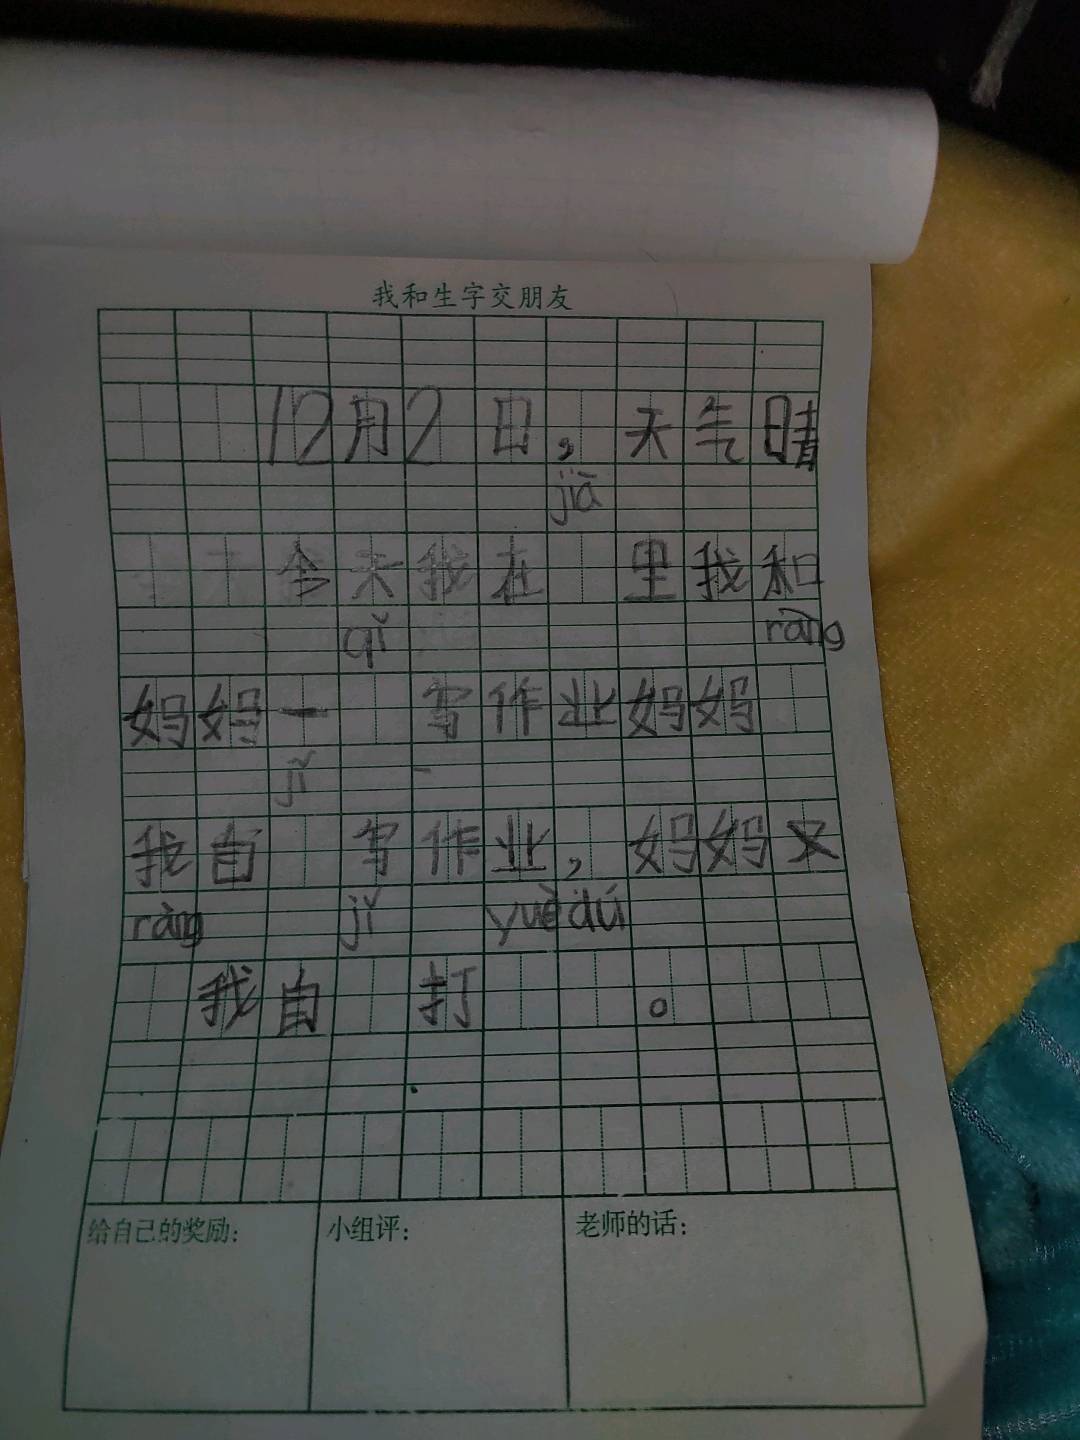 我和生字交朋友
12月2日，天气晴
jiā
今天我在 里我和
qǐ ràng
妈妈一 写作业妈妈
jǐ
我自 写作业，妈妈又
ràng jǐ yuèdú
我自 打 。
给自己的奖励： 小组评： 老师的话：